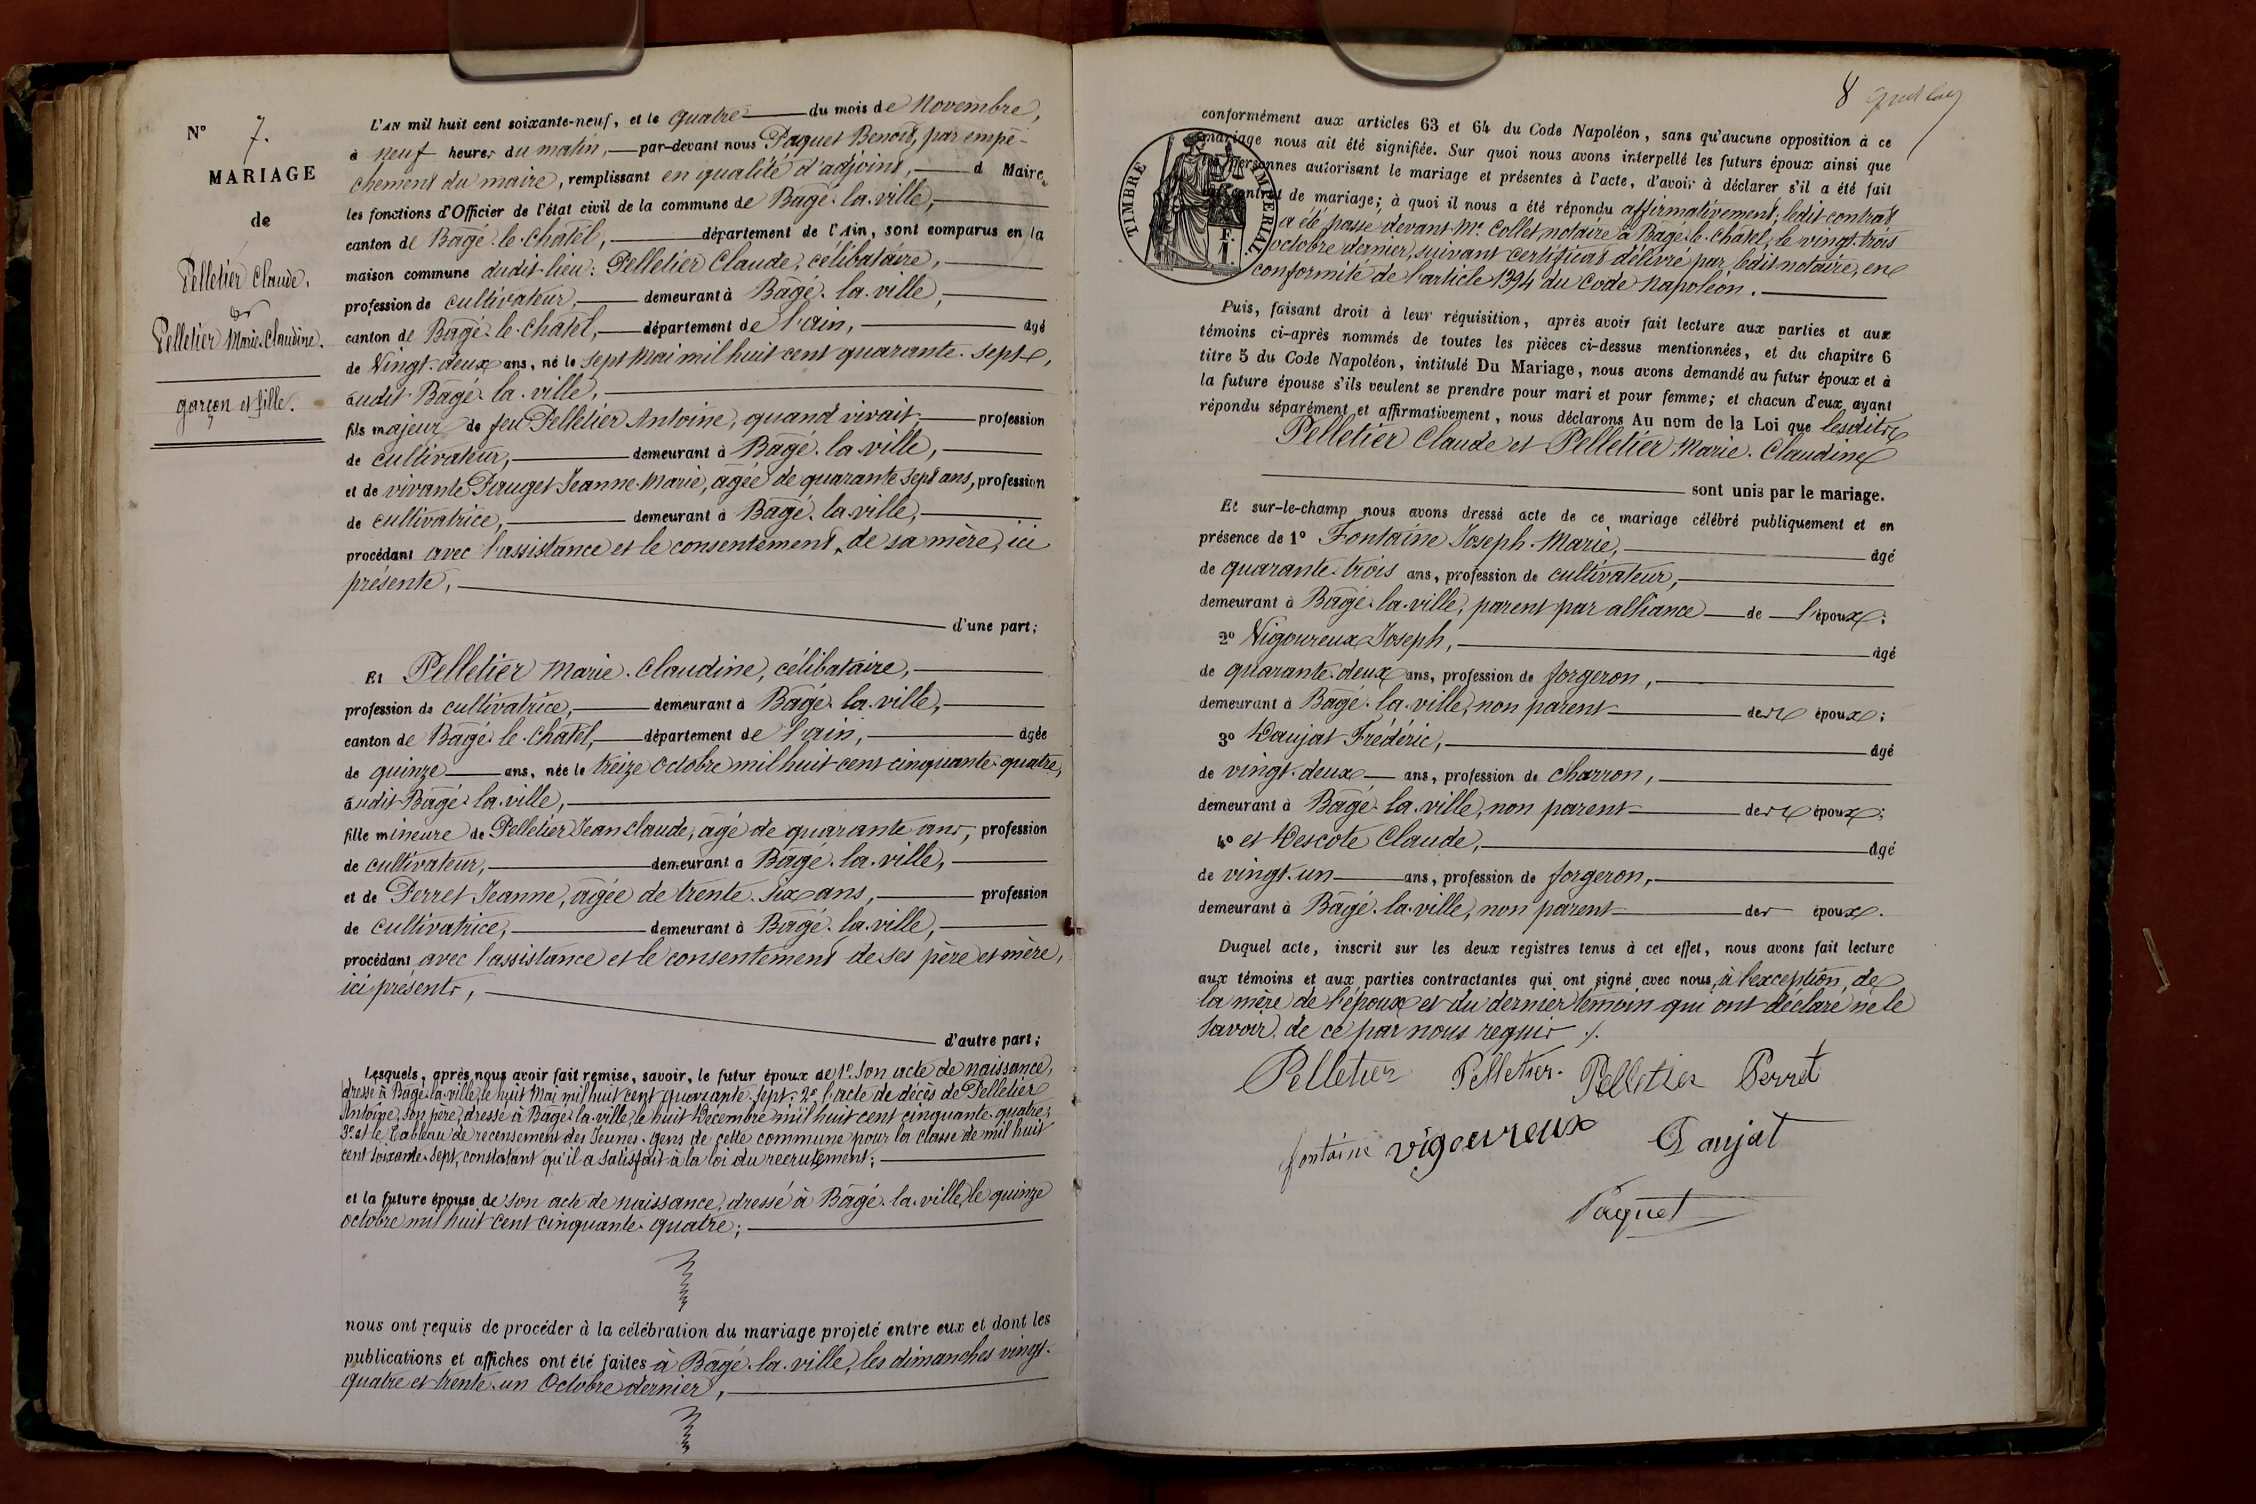 N° 7.
MARIAGE
de
Pelletier Claude.
et
Pelletier Marie-Claudine.
garçon et fille.
L'AN mil huit cent soixante-neuf, et le quatre du mois de Novembre,
à neuf heures du matin, par-devant nous Paquet Benoît, par empê-
chement du maire, remplissant en qualité d'adjoint, d Maire,
les fonctions d'Officier de l'état civil de la commune de Bâgé-la-ville,
canton de Bâgé-le-Châtel, département de l'Ain, sont comparus en la
maison commune dudit lieu: Pelletier Claude, célibataire,
profession de cultivateur, demeurant à Bâgé-la-ville,
canton de Bâgé-le-Châtel, département de l'ain, âgé
de Vingt-deux ans, né le sept mai mil huit cent quarante-sept,
audit Bâgé-la-ville,
fils majeur de feu Pelletier Antoine, quand vivait profession
de cultivateur, demeurant à Bâgé-la-ville,
et de vivante Pauget Jeanne-Marie, âgée de quarante sept ans, profession
de cultivatrice, demeurant à Bâgé-la-ville,
procédant avec l'assistance et le consentement de sa mère, ici
présente,
d'une part;
Et Pelletier Marie-Claudine, célibataire,
profession de cultivatrice, demeurant à Bâgé-la-ville,
canton de Bâgé-le-Châtel, département de l'ain, âgée
de quinze ans, née le treize octobre mil huit cent cinquante-quatre,
audit Bâgé-la-ville,
fille mineure de Pelletier Jean Claude, âgé de quarante ans, profession
de cultivateur, demeurant à Bâgé-la-ville,
et de Perret Jeanne, âgée de trente-six ans, profession
de cultivatrice, demeurant à Bâgé-la-ville,
procédant avec l'assistance et le consentement de ses père et mère,
ici présents,
d'autre part;
Lesquels, après nous avoir fait remise, savoir, le futur époux de 1° Son acte de naissance,
dressé à Bâgé-la-ville, le huit Mai mil huit cent quarante-sept; 2° l'acte de décès de Pelletier
Antoine, son père, dressé à Bâgé-la-ville, le huit Décembre mil huit cent cinquante-quatre;
3° et le Tableau de recensement des Jeunes-Gens de cette commune pour la Classe de mil huit
cent soixante-sept, constatant qu'il a satisfait à la loi du recrutement;
et la future épouse de son acte de naissance, dressé à Bâgé-la-ville, le quinze
octobre mil huit cent cinquante-quatre;
nous ont requis de procéder à la célébration du mariage projeté entre eux et dont les
publications et affiches ont été faites à Bâgé-la-ville, les dimanches vingt-
quatre et trente-un Octobre dernier,
8
conformément aux articles 63 et 64 du Code Napoléon, sans qu'aucune opposition à ce
mariage nous ait été signifiée. Sur quoi nous avons interpellé les futurs époux ainsi que
personnes autorisant le mariage et présentes à l'acte, d'avoir à déclarer s'il a été fait
contrat de mariage; à quoi il nous a été répondu affirmativement; ledit contrat
a été passé devant Me Collet, notaire à Bâgé-le-Châtel, le vingt-trois
octobre dernier, suivant certificat délivré par ledit notaire, en
conformité de l'article 1394 du Code Napoléon.
TIMBRE IMPERIAL
1 F.
Puis, faisant droit à leur réquisition, après avoir fait lecture aux parties et aux
témoins ci-après nommés de toutes les pièces ci-dessus mentionnées, et du chapitre 6
titre 5 du Code Napoléon, intitulé Du Mariage, nous avons demandé au futur époux et à
la future épouse s'ils veulent se prendre pour mari et pour femme; et chacun d'eux ayant
répondu séparément et affirmativement, nous déclarons Au nom de la Loi que lesdits
Pelletier Claude et Pelletier Marie-Claudine
sont unis par le mariage.
Et sur-le-champ nous avons dressé acte de ce mariage célébré publiquement et en
présence de 1° Fontaine Joseph-Marie, âgé
de quarante-trois ans, profession de cultivateur,
demeurant à Bâgé-la-ville, parent par alliance de l'époux;
2° Vigoureux Joseph, âgé
de quarante-deux ans, profession de forgeron,
demeurant à Bâgé-la-ville, non parent des époux;
3° Daujat Frédéric, âgé
de vingt-deux ans, profession de Charron,
demeurant à Bâgé-la-ville, non parent des époux;
4° et Descote Claude, âgé
de vingt-un ans, profession de forgeron,
demeurant à Bâgé-la-ville, non parent des époux.
Duquel acte, inscrit sur les deux registres tenus à cet effet, nous avons fait lecture
aux témoins et aux parties contractantes qui ont signé avec nous, à l'exception de
la mère de l'époux et du dernier témoin qui ont déclaré ne le
savoir, de ce par nous requis ./.
Pelletier Pelletier Pelletier Perret
fontaine vigoureux Daujat
Paquet